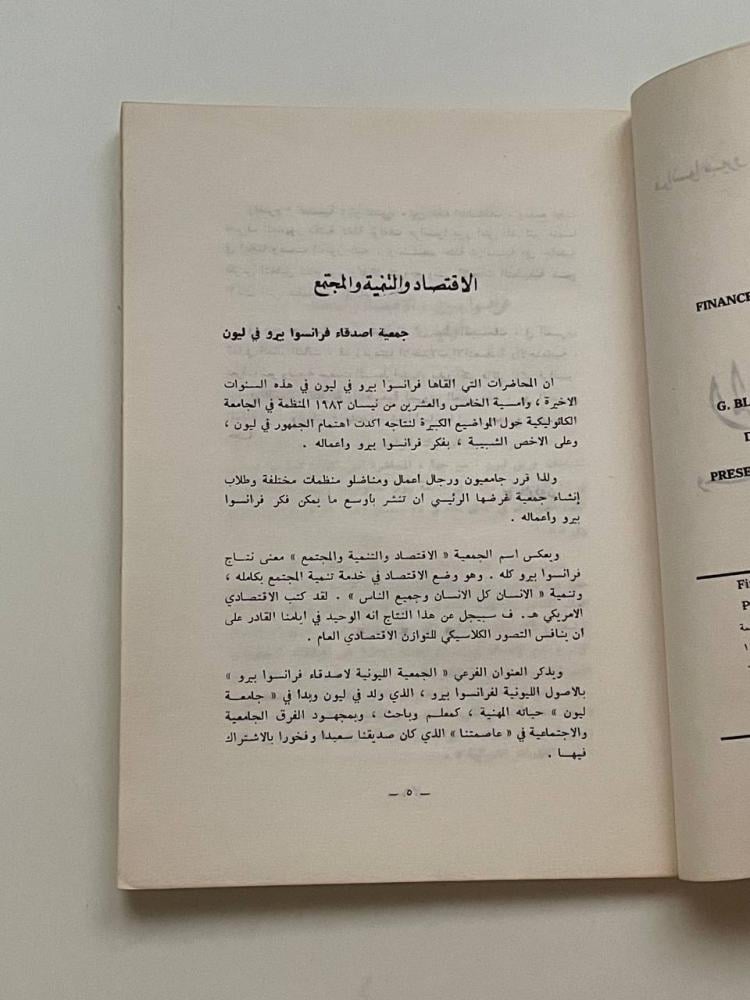 الاقتصاد والتنمية والمجتمع
جمعية اصدقاء فرانسوا بيرو في ليون
ان المحاضرات التي القاها فرانسوا بيرو في ليون في هذه السنوات
الاخيرة ، وامسية الخامس والعشرين من نيسان ١٩٨٣ المنظمة في الجامعة
الكاثوليكية حول المواضيع الكبيرة لنتاجه اكدت اهتمام الجمهور في ليون ،
وعلى الاخص الشبيبة ، بفكر فرانسوا بيرو واعماله .
ولذا قرر جامعيون ورجال اعمال ومناضلو منظمات مختلفة وطلاب
إنشاء جمعية غرضها الرئيسي ان تنشر باوسع ما يمكن فكر فرانسوا
بيرو واعماله .
ويعكس اسم الجمعية « الاقتصاد والتنمية والمجتمع » معنى نتاج
فرانسوا بيرو كله . وهو وضع الاقتصاد في خدمة تنمية المجتمع بكامله ،
وتنمية « الانسان كل الانسان وجميع الناس » . لقد كتب الاقتصادي
الامريكي هـ. ف سبيجل عن هذا النتاج إنه الوحيد في ايامنا القادر على
ان ينافس التصور الكلاسيكي للتوازن الاقتصادي العام .
ويذكر العنوان الفرعي « الجمعية الليونية لاصدقاء فرانسوا بيرو »
بالاصول الليونية لفرانسوا بيرو ، الذي ولد في ليون وبدا في « جامعة
ليون » حياته المهنية ، كمعلم وباحث ، وبمجهود الفرق الجامعية
والاجتماعية في « عاصمتنا » الذي كان صديقنا سعيدا وفخورا بالاشتراك
فيها .
— ٥ —
FINANCE
G. BL
PRESE